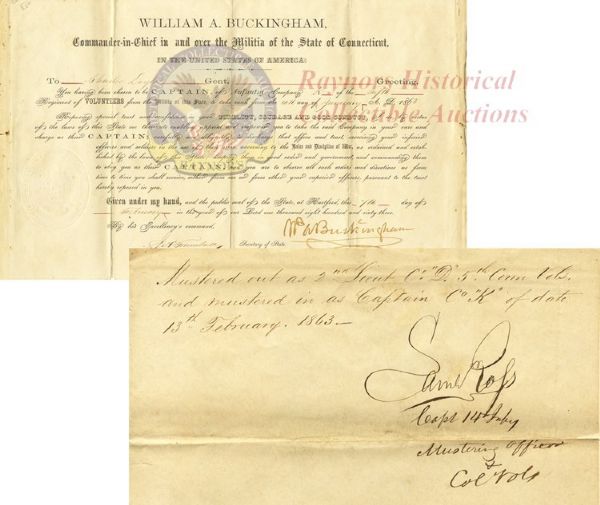 WILLIAM A. BUCKINGHAM,
Commander-in-Chief in and over the Militia of the State of Connecticut,
IN THE UNITED STATES OF AMERICA:
To Charles Gent. Greeting.
You having been chosen to be CAPTAIN, of Infantry Company of the
Regiment of VOLUNTEERS from the Militia of this State, to take rank from the of A. D. 1863
Reposing special trust and confidence in your FIDELITY, COURAGE AND GOOD CONDUCT,
of the laws of this State me thereunto appoint and empower you to take the said Company into your care and
charge as their CAPTAIN;
officers and soldiers in the Rules and Discipline of War, as ordained and estab-
lished by the laws of good order and government, and commanding them
to obey you as their CAPTAIN: you are to observe all such orders and directions as from
time to time you shall receive, either from me or from other your superior officers, pursuant to the trust
hereby reposed in you.
Given under my hand, and the public seal of this State, at Hartford, this 7th day of
February in the year of our Lord one thousand eight hundred and sixty three.
By his Excellency's command,
Secretary of State.
Wm A Buckingham
Raynors Historical
Collectible Auctions
Mustered out as 2nd Lieut Co "D" 5th Conn Vols.
and mustered in as Captain Co "K" of date
13th February. 1863.—
Saml Ross
Capt 14th Infy
Mustering Officer
& Col Vols